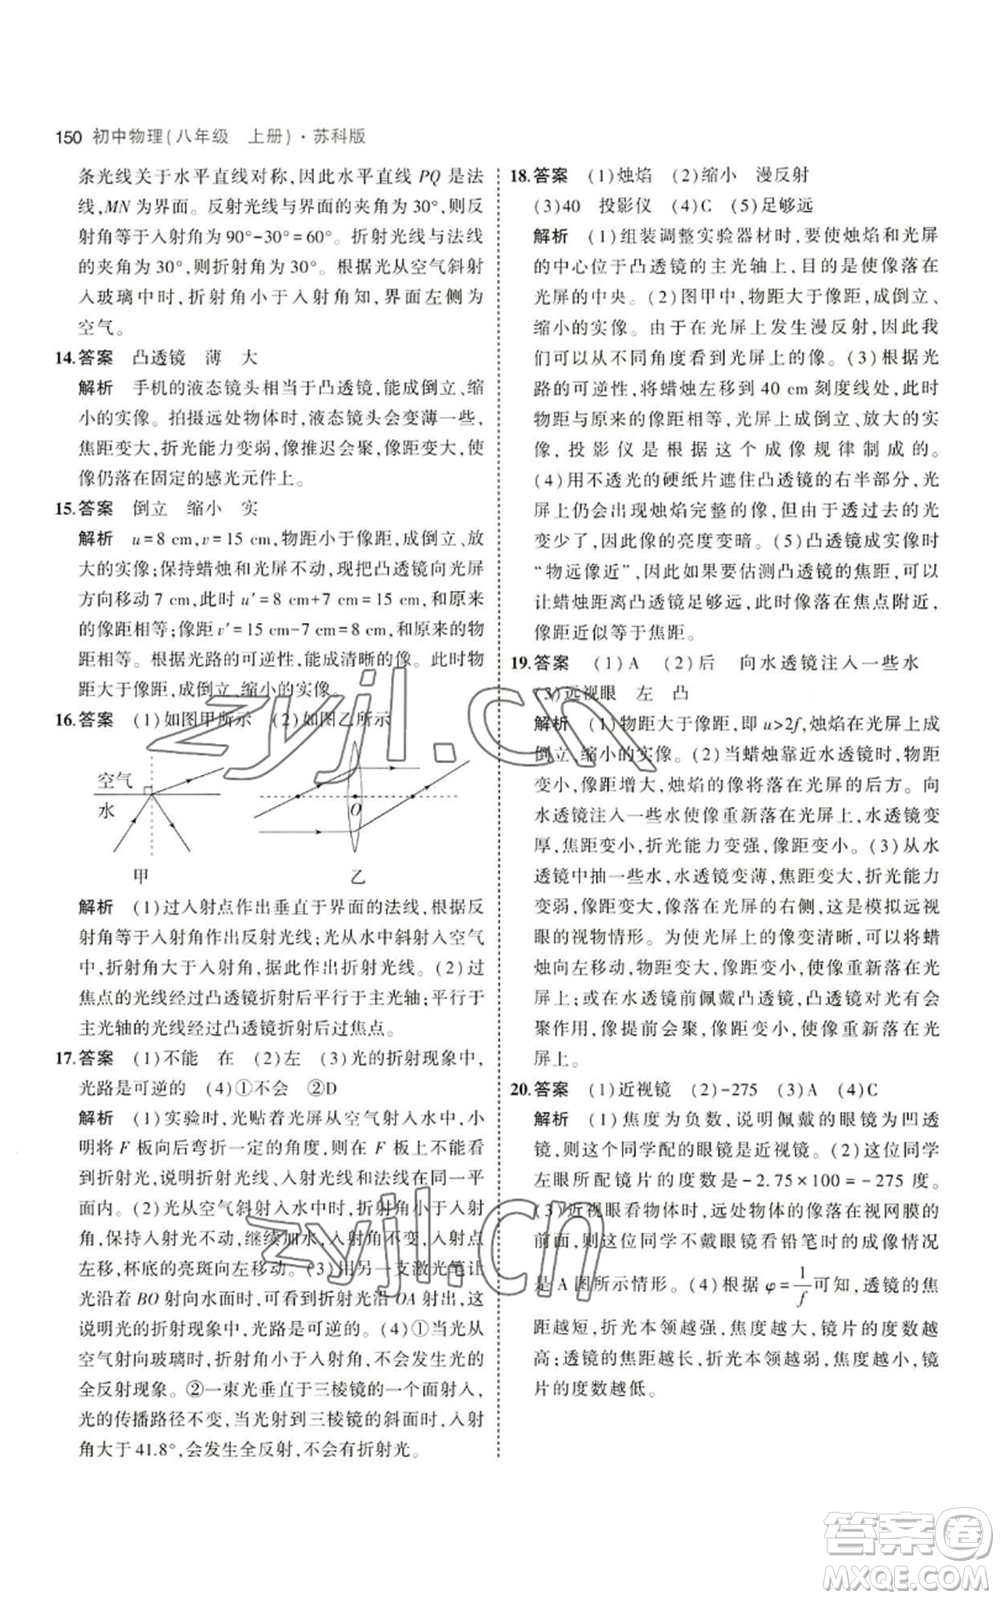 150 初中物理(八年级　上册)·苏科版
条光线关于水平直线对称,因此水平直线 PQ 是法
线,MN 为界面。反射光线与界面的夹角为30°,则反
射角等于入射角为90°-30°=60°。折射光线与法线
的夹角为30°,则折射角为30°。根据光从空气斜射
入玻璃中时,折射角小于入射角知,界面左侧为
空气。
14.答案　凸透镜　薄　大
解析　手机的液态镜头相当于凸透镜,能成倒立、缩
小的实像。拍摄远处物体时,液态镜头会变薄一些,
焦距变大,折光能力变弱,像推迟会聚,像距变大,使
像仍落在固定的感光元件上。
15.答案　倒立　缩小　实
解析　u=8 cm,v=15 cm,物距小于像距,成倒立、放
大的实像;保持蜡烛和光屏不动,现把凸透镜向光屏
方向移动7 cm,此时 u′=8 cm+7 cm=15 cm,和原来
的像距相等;像距 v′=15 cm-7 cm=8 cm,和原来的物
距相等。根据光路的可逆性,能成清晰的像。此时物
距大于像距,成倒立、缩小的实像。
16.答案　(1)如图甲所示　(2)如图乙所示
空气
水
O
甲
乙
解析　(1)过入射点作出垂直于界面的法线,根据反
射角等于入射角作出反射光线;光从水中斜射入空气
中,折射角大于入射角,作出折射光线。(2)过
焦点的光线经过凸透镜折射后平行于主光轴;平行于
主光轴的光线经过凸透镜折射后过焦点。
17.答案　(1)不能　在　(2)左　(3)光的折射现象中,
光路是可逆的　(4)①不会　②D
解析　(1)实验时,光贴着光屏从空气射入水中,小
明将 F 板向后弯折一定的角度,则在 F 板上不能看
到折射光,说明折射光线、入射光线和法线在同一平
面内。(2)光从空气斜射入水中时,折射角小于入射
角,保持入射光不变,继续加水,入射角不变,入射点
左移,杯底的亮斑向左移动。(3)用另一支激光笔让
光沿着 BO 射向水面时,可看到折射光沿 OA 射出,这
说明光的折射现象中,光路是可逆的。(4)①当光从
空气射入玻璃时,折射角小于入射角,不会发生光的
全反射现象。②一束光垂直于三棱镜的一个面射入,
光的传播路径不变,当光射到三棱镜的斜面时,入射
角大于41.8°,会发生全反射,没有折射光。
18.答案　(1)烛焰　(2)缩小　漫反射
(3)40　投影仪　(4)C　(5)足够远
解析　(1)组装调整实验器材时,要使烛焰和光屏
的中心位于凸透镜的主光轴上,目的是使像落在
光屏的中央。(2)图甲中,物距大于像距,成倒立、
缩小的实像。由于在光屏上发生漫反射,因此我们
可以从不同角度看到光屏上的像。(3)根据光
路的可逆性,将蜡烛左移到40 cm刻度线处,此时
物距与原来的像距相等,光屏上成倒立、放大的实
像,投影仪是根据这个成像规律制成的。
(4)用不透光的硬纸片遮住凸透镜的右半部分,光
屏上仍会有烛焰完整的像,但由于经过凸透镜的光
变少了,因此像的亮度变暗。(5)凸透镜成实像时
“物远像近”,因此如果要估测凸透镜的焦距,可以
让蜡烛距离凸透镜足够远,此时像落在焦点附近,
像距近似等于焦距。
19.答案　(1)A　(2)后　向水透镜注入一些水
(3)远视眼　左　凸
解析　(1)物距大于像距,即 u>2f,烛焰在光屏上成
倒立、缩小的实像。(2)当蜡烛靠近水透镜时,物距变
小,像距增大,烛焰的像将落在光屏的后方。向
水透镜注入一些水能使像重新落在光屏上,水透镜变
厚,焦距变小,折光能力变强。(3)从水
透镜中抽一些水,水透镜变薄,焦距变大,折光能力
变弱,像会落在光屏的右侧,这是模拟远视
眼的视物情形。为使光屏上的像变清晰,可以将蜡
烛向左移动,物距变大,像距变小,使像重新落在光
屏上;或在水透镜前佩戴凸透镜,凸透镜对光有会
聚作用,像提前会聚,像距变小,使像重新落在光
屏上。
20.答案　(1)近视镜　(2)-275　(3)A　(4)C
解析　(1)焦度为负数,说明佩戴的眼镜为凹透
镜,所以这个同学配的眼镜是近视镜。(2)这位同学
左眼所配镜片的度数是-2.75×100=-275度。
(3)近视眼看物体时,远处物体的像落在视网膜的
前面,则这位同学不戴眼镜看铅笔时的成像情况
是A图所示情形。(4)根据 φ=1/f 可知,透镜的焦
距越短,折光本领越强,焦度越大,镜片的度数越
高;透镜的焦距越长,折光本领越弱,焦度越小,镜
片的度数越低。
zyjl.cn
zyjl.cn
答案圈
MXQE.COM